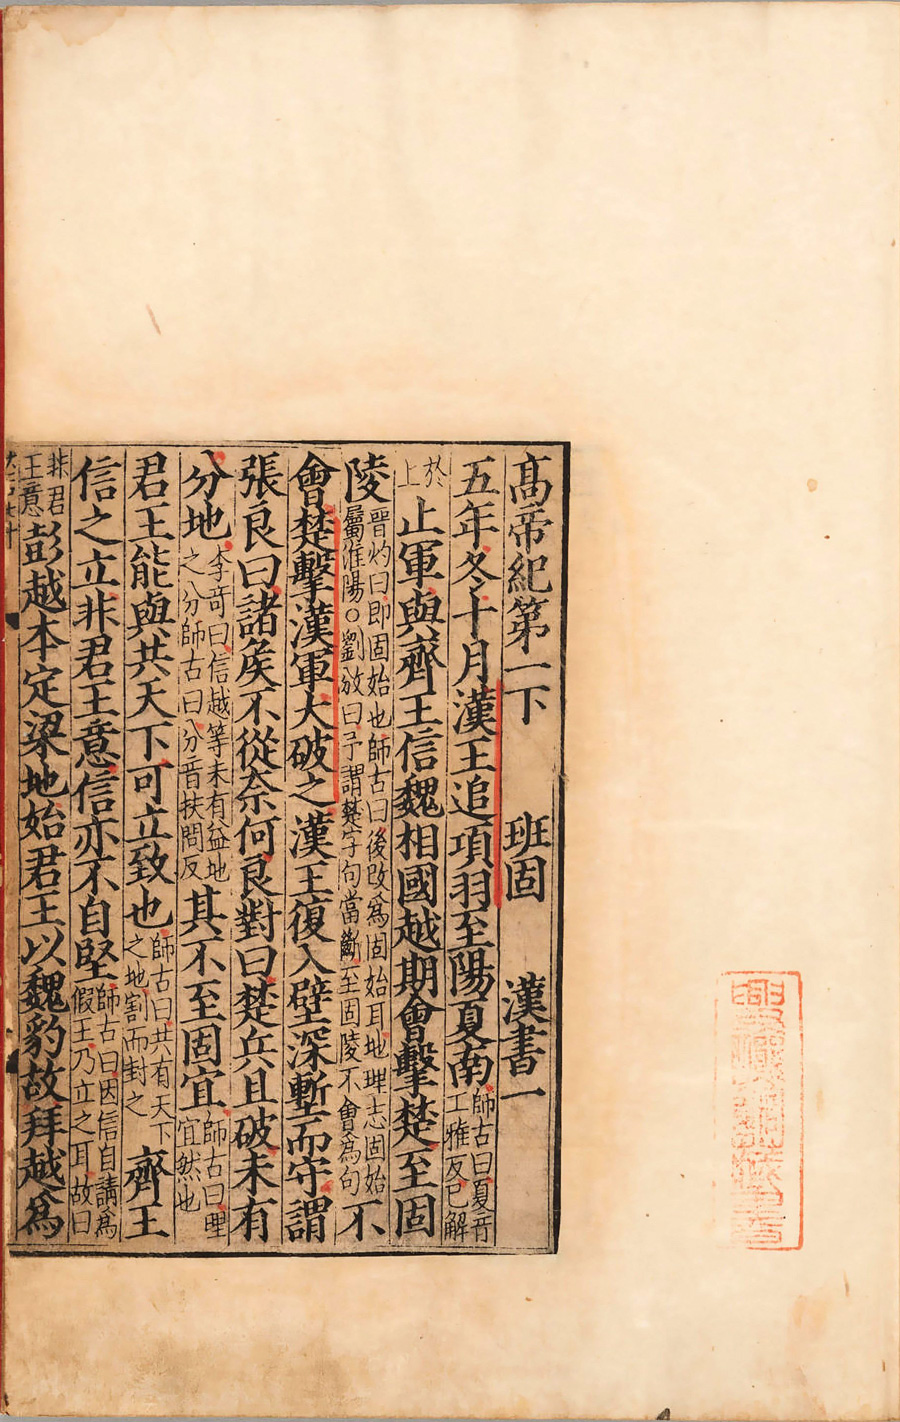 髙帝紀第一下 班固 漢書一
五年冬十月漢王追項羽至陽夏南師古曰夏音工雅反已解
於上止軍與齊王信魏相國越期會擊楚至固
陵晉灼曰即固始也師古曰後改爲固始耳地理志固始屬淮陽○劉攽曰予謂楚字句當斷至固陵不會爲句不
會楚擊漢軍大破之漢王復入壁深塹而守謂
張良曰諸矦不從奈何良對曰楚兵且破未有
分地李奇曰信越等未有益地之分師古曰分音扶問反其不至固宜師古曰理宜然也
君王能與共天下可立致也師古曰共有天下之地割而封之齊王
信之立非君王意信亦不自堅師古曰因信自請爲假王乃立之耳故曰
非君王意彭越本定梁地始君王以魏豹故拜越爲